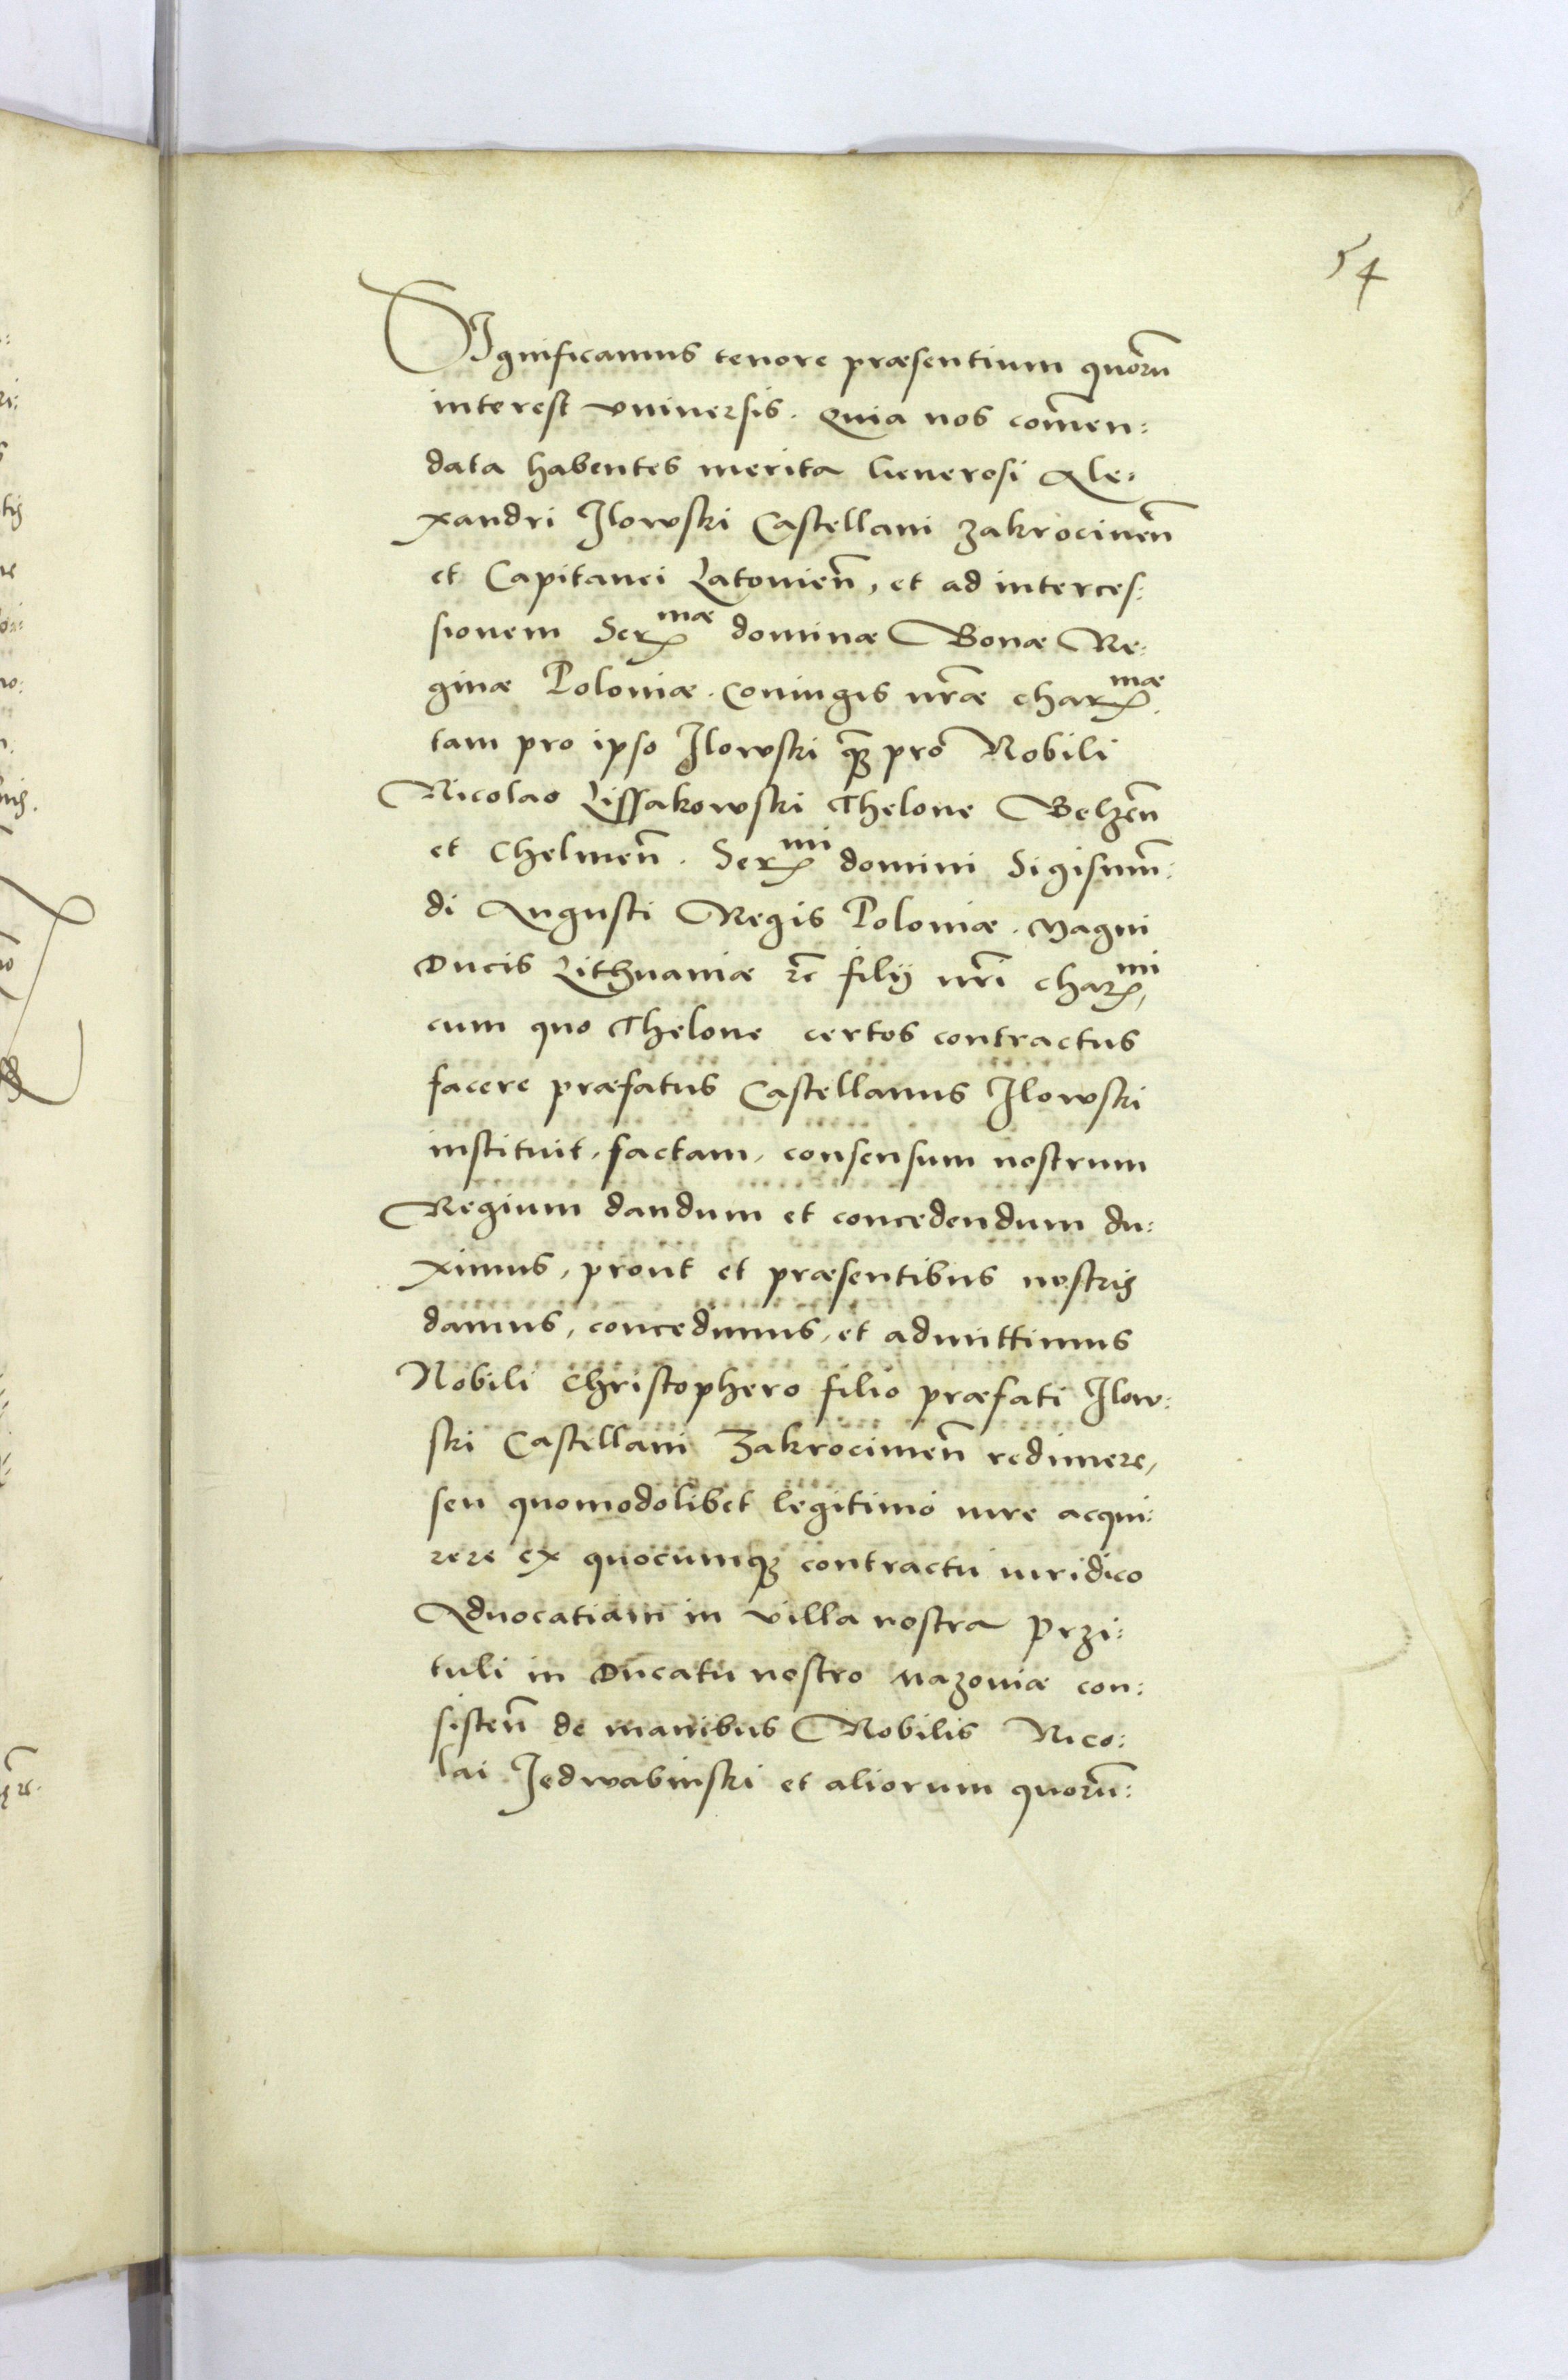 54
SIgnificamus tenore præsentium quorũ
interest vniuersis. Quia nos com̃en:
data habentes merita Generosi Ale:
xandri Ilowski Castellani Zakrocimeñ
et Capitanei Latouieñ, et ad interces:
sionem Ser^mæ dominæ Bonæ Re:
ginæ Poloniæ. Coniugis nr̃æ char^mæ.
tam pro ipso Ilowski q̃ʒ pro Nobili
Nicolao Lissakowski Thelone Belzeñ
et Chelmeñ. Ser^mi domini Sigismũ:
di Augusti Regis Poloniæ. Magni
Ducis Lithuaniæ &c̃ filij nr̃i char^mi,
cum quo Thelone certos contractus
facere præfatus Castellanus Ilowski
instituit, factam, consensum nostrum
Regium dandum et concedendum du:
ximus, prout et præsentibus nostris
damus, concedimus, et admittimus
Nobili Christophero filio præfati Ilow:
ski Castellani Zakrocimeñ redimere,
seu quomodolibet legitimo iure acqui:
rere ex quocumqʒ contractu iuridico
Aduocatiam in villa nostra Przi:
tuli in Ducatu nostro Mazouiæ con:
sisteñ de manibus Nobilis Nico:
lai Jedwabinski et aliorum quorũ: